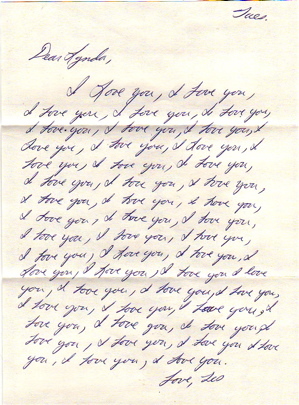 Tues.
Dear Lynda,
I love you, I love you,
I love you, I love you, I love you,
I love you, I love you, I love you, I
love you, I love you, I love you, I
love you, I love you, I love you,
I love you, I love you, I love you,
I love you, I love you, I love you,
I love you, I love you, I love you,
I love you, I love you, I love you,
I love you, I love you, I love you, I
love you, I love you, I love you I love
you, I love you, I love you, I love you,
I love you, I love you, I love you, I
love you, I love you, I love you, I
love you, I love you, I love you I love
you, I love you, I love you.
Love, Les